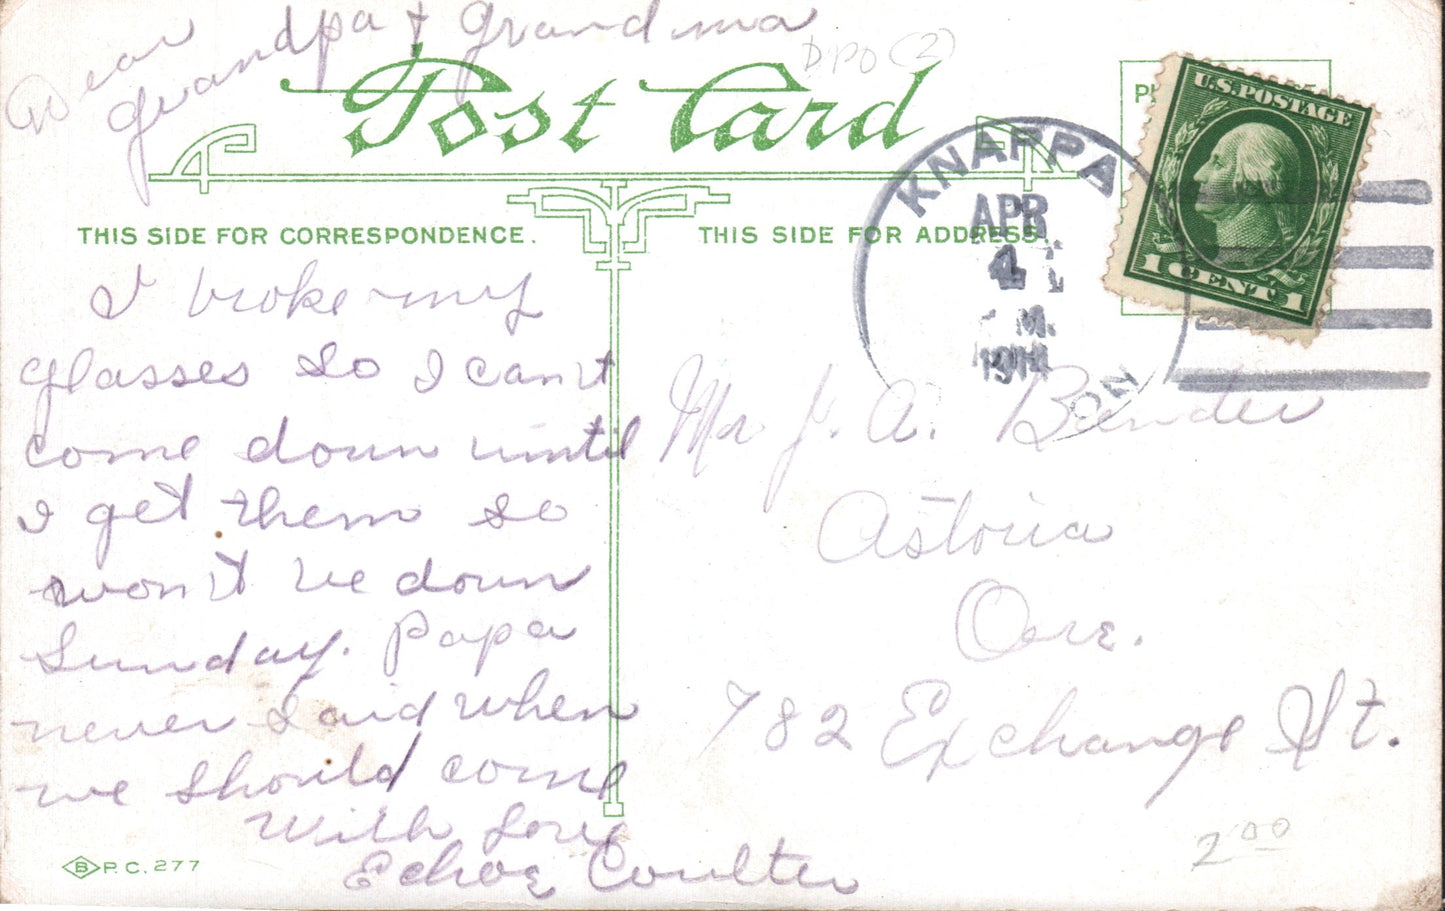 Dear
Grandpa & Grandma
DPO (2)
Post Card
U.S. POSTAGE
1 CENT 1
KNAPPA
APR
4
M.
ON
THIS SIDE FOR CORRESPONDENCE.
THIS SIDE FOR ADDRESS.
I broke my
glasses so I can't
come down until
I get them so
won't be down
Sunday. Papa
never said when
we should come
With Love
Echoe Coulter
Mr J. A. Bander
Astoria
Ore.
782 Exchange St.
2.00
B P.C. 277